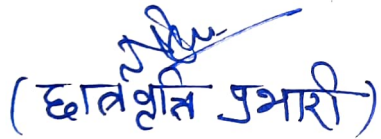 (छात्रवृत्ति प्रभारी)